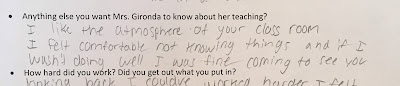 • Anything else you want Mrs. Gironda to know about her teaching?
I like the atmosphere of your class room
I felt comfortable not knowing things and if I
wasn't doing well I was fine coming to see you
• How hard did you work? Did you get out what you put in?
looking back I could've worked harder I felt